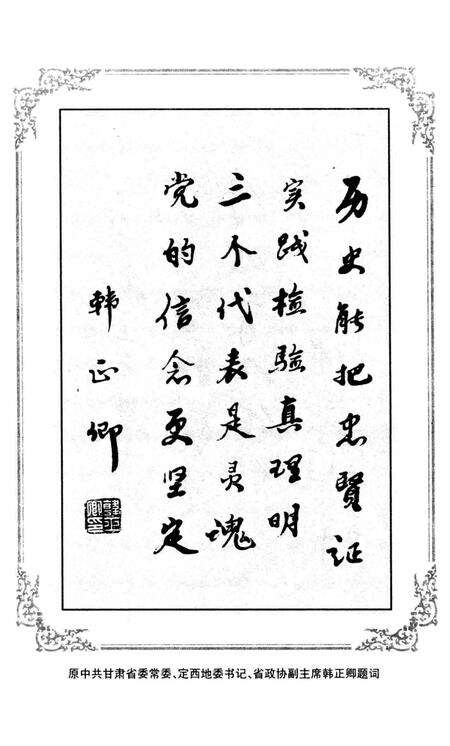 历史能把忠賢证
实践检验真理明
三个代表是灵魂
党的信念更坚定
韩正卿
原中共甘肃省委常委、定西地委书记、省政协副主席韩正卿题词